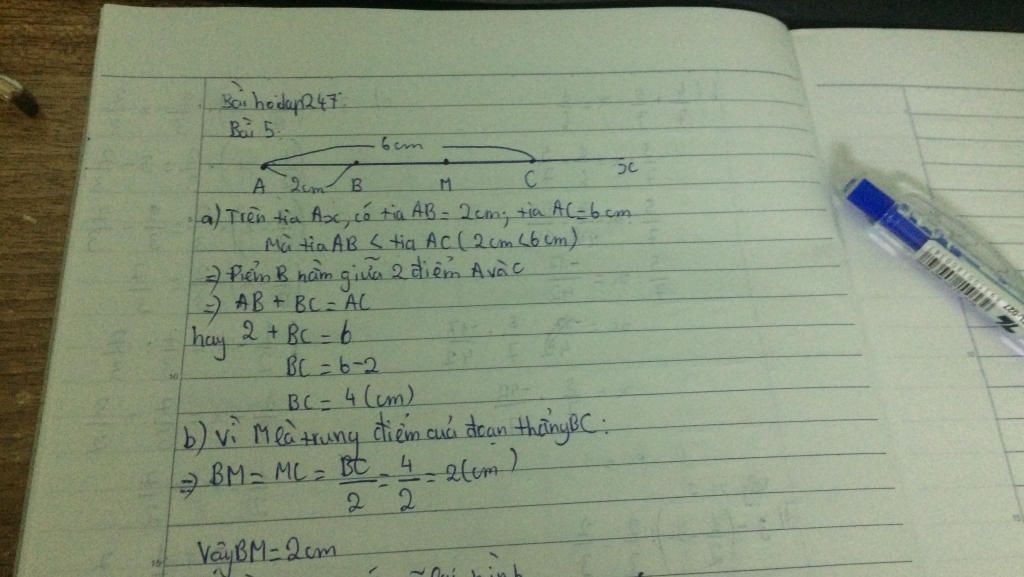 Bài hoidap247.
Bài 5.
6cm
A 2cm B M C x
a) Trên tia Ax, có tia AB = 2cm; tia AC = 6cm
Mà tia AB < tia AC (2cm < 6cm)
=> Điểm B nằm giữa 2 điểm A và C
=> AB + BC = AC
hay 2 + BC = 6
BC = 6-2
BC = 4 (cm)
b) Vì M là trung điểm cuả đoạn thẳng BC:
=> BM = MC = BC/2 = 4/2 = 2 (cm)
Vậy BM = 2cm